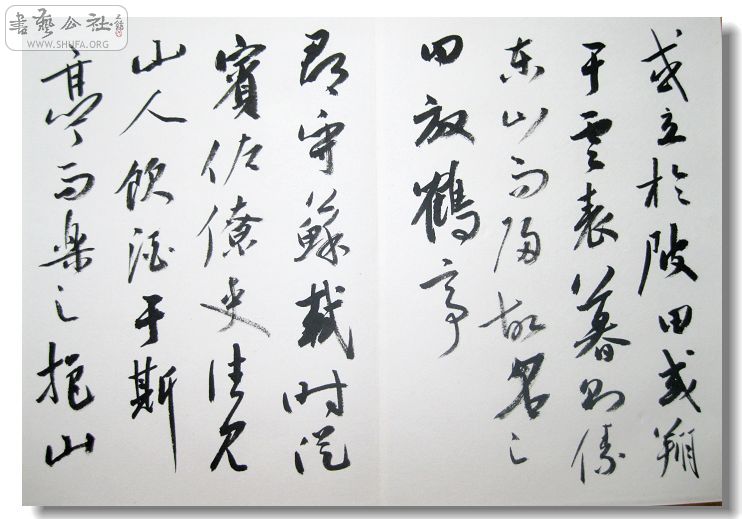 或立於陂田或翔
于雲表暮則傃
東山而歸故名之
曰放鶴亭
郡守蘇軾時從
賓佐僚吏往見
山人飲酒于斯
亭而樂之挹山
書藝公社
WWW.SHUFA.ORG